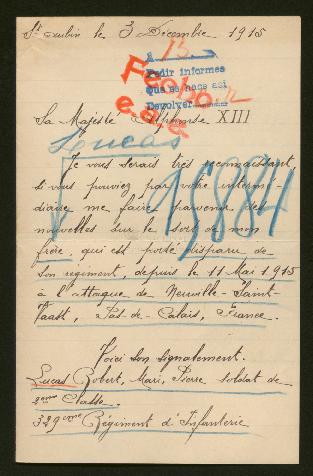 St Aubin le 3 Décembre 1915
A 13
Pedir informes
que se hace así
Devolver
Fecho
Sa Majesté Alphonse XIII
Lucas
15884
Je vous serais très reconnaissant
si vous pouviez par votre intermé-
diaire me faire parvenir des
nouvelles sur le sort de mon
frère, qui est porté disparu de
son régiment, depuis le 11 Mai 1915
à l'attaque de Neuville-Saint-
Vaast, Pas-de-Calais, France.
Voici son signalement.
Lucas Robert, Mari, Pierre soldat de
2ème Classe.
329ème Régiment d'Infanterie